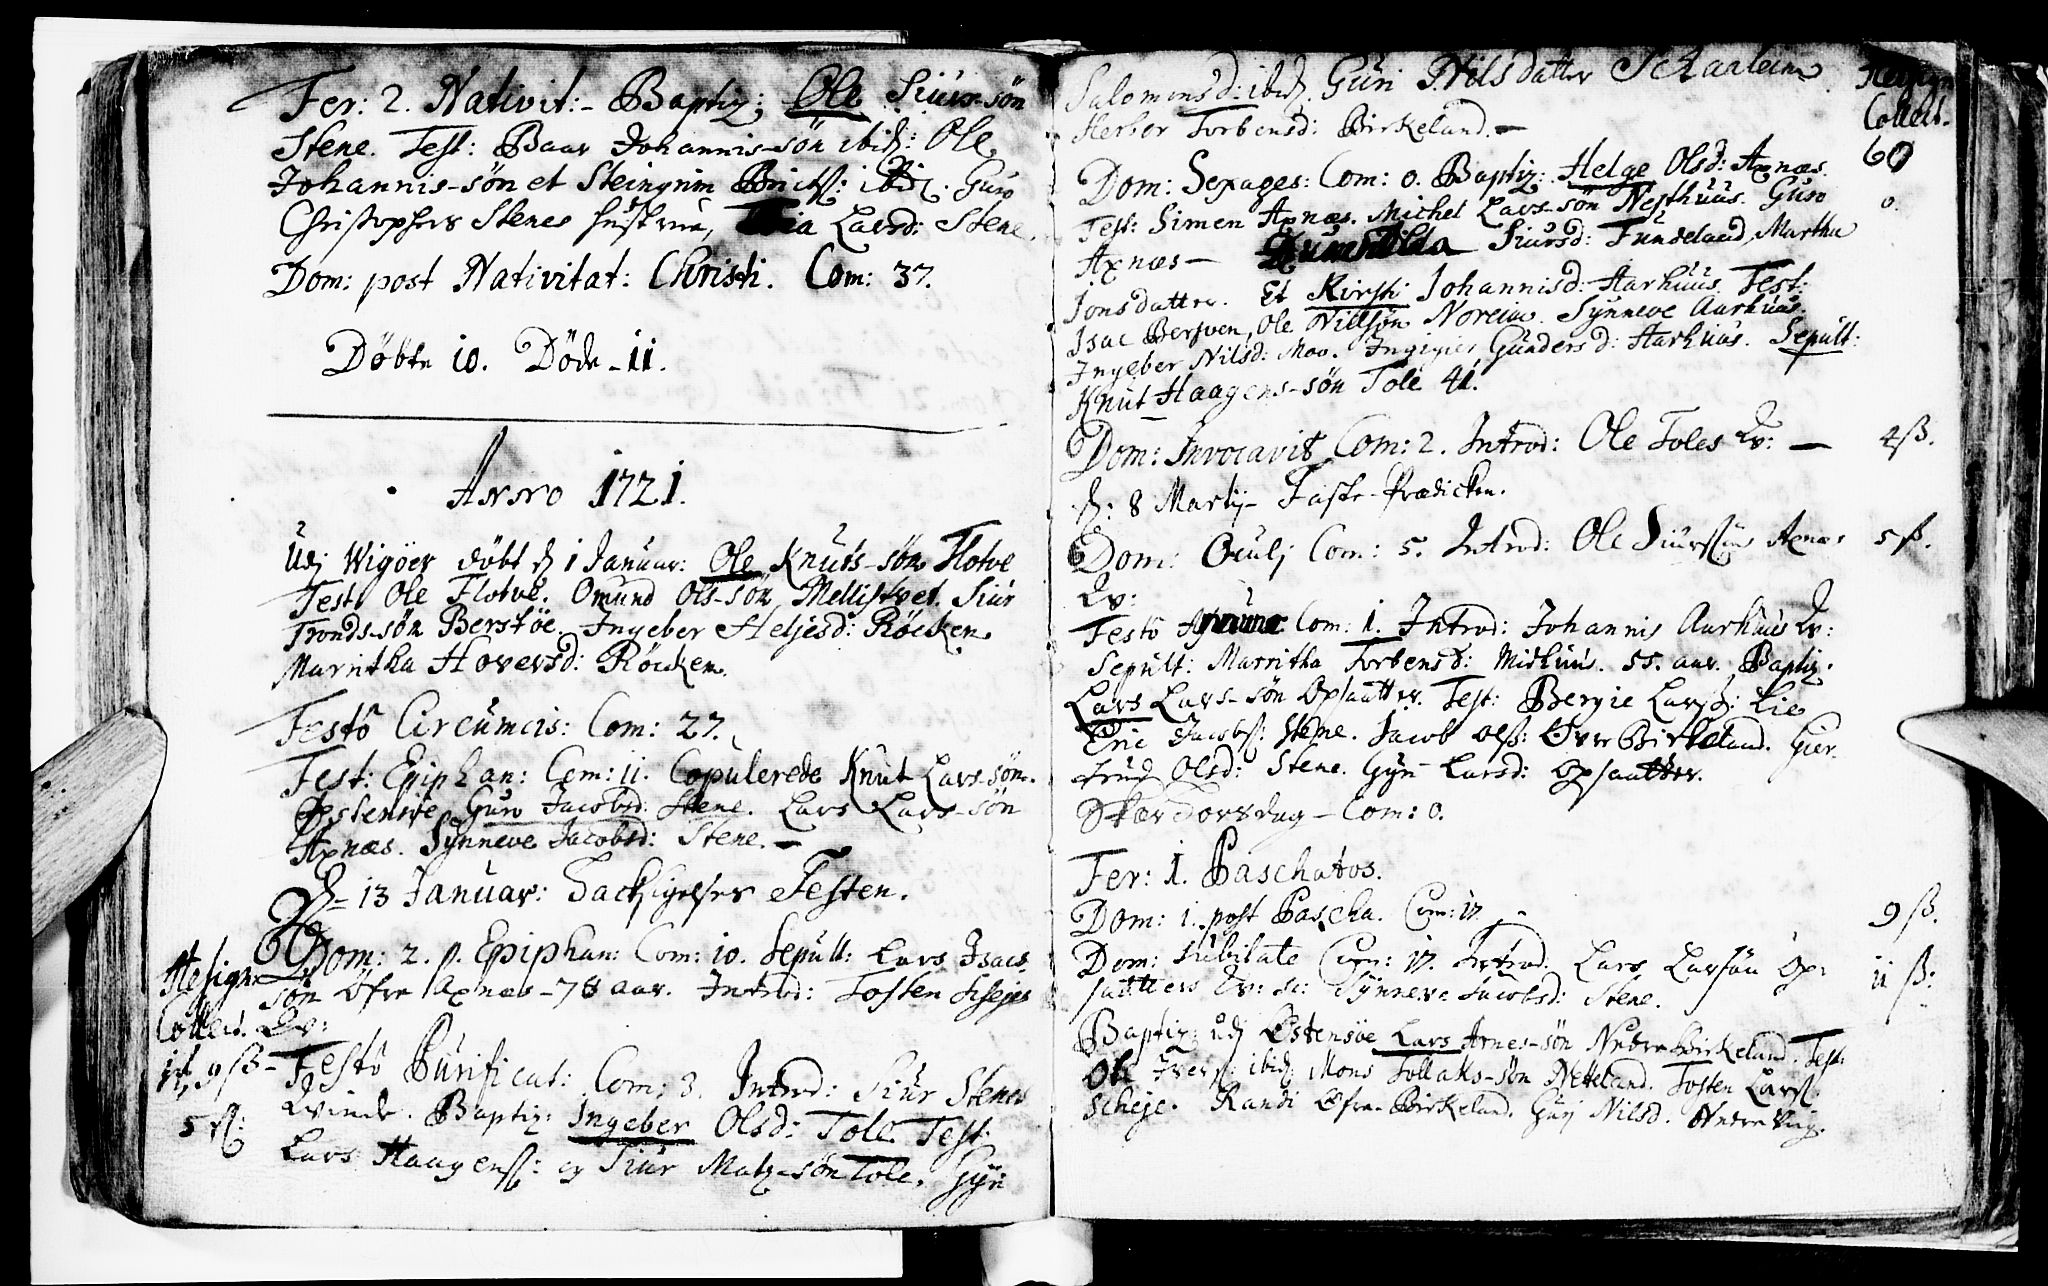 Fer: 2. Nativit: - Baptiz: Ole Siurs-søn
Stene. Test: Baar Johannis-søn ibid: Ole
Johannis-søn et Steingrim ibid. Guro
Christophers Stenes hustrue, Larsd: Stene.
Dom: post Nativitat: Christi. Com: 37.
Døbte 10. Døde - 11.
Anno 1721.
Udj Wigöer døbt d 1 Januar: Ole Knuts-søn Flotve
Test. Ole Flotve. Omund Ols-søn Mellistvet. Siur
Tronds-søn Berstøe. Ingeber Heljesd: Röcken
Marritha Hoversd: Röcken.
Festô Circumcis: Com: 27.
Fest: Epiphan: Com: 11. Copulerede Knut Lars-søn
Østensøe Guro Jacobsd: Stene. Lars Lars-søn
Axnæs. Synneve Jacobsd: Stene. -
D= 13 Januar: Tacksigelses Festen.
Dom: 2. p. Epiphan: Com: 10. Sepult: Lars Isacs
søn Öfre Axnæs - 78 aar. Introd: Tosten Schejes
Qv:
Hesign
Collect.
9 ß -
Festô Purificat: Com: 3. Introd: Siur Stenes
Qvinde. Baptiz: Ingeber Olsd: Tole. Test:
5 ß:
Lars Haagenß: og Siur Matz-søn Tole. Gyri
Salomonsd: ibid. Guri Nilsdatter
Herber Torbensd: Birkeland. -
Hesign
Collect.
60
Dom: Sexages: Com: 0. Baptiz: Helge Olsd: Axnæs.
Test: Simen Axnæs. Michel Lars-søn Nesthuus. Guro
0.
Axnæs - Siursd: Tundeland, Martha
Jonsdatter. Et Kirsti Johannisd: Aarhuus. Test:
Isac Berven, Ole Nilssøn Noreim. Synneve Aarhuus.
Ingeber Nilsd: Mov. Gundersd: Aarhuus. Sepult:
Knut Haagens-søn Tole 41.
Dom: Invocavit Com: 2. Introd: Ole Toles Qv: -
4 ß.
d: 8 Martij - Faste-Prædicken.
Dom: Oculj Com: 5. Introd: Ole Axnæs
5 ß.
Qv:
Festô Com: 1. Introd: Johannis Aarhuus Qv:
Sepult: Marritha Torbensd: Midhuus. 55. aar. Baptiz.
Lars Lars-søn Opsaatter. Test: Bergie Larsß: Lie
Eric Jacobß: Stene. Jacob Olß: Øvre Birkeland. Gier-
trud Olsd: Stene. Gyri Larsd: Opsaatter.
Skær Torsdag - Com: 0.
Fer: 1. Paschatos.
Dom: 1. post Pascha. Com: 17.
9 ß.
Dom: Jubilate Com: 17. Introd: Lars Larsøn Op-
11 ß:
saatters Qv: Synneve Jacobsd: Stene.
Baptiz: udj Østensøe Lars Arnes-søn Nedre Birkeland. Test:
Ole Iversß: ibid: Mons Tollaks-søn Netteland. Tosten Larsß
Scheje. Randi Øfre-Birkeland. Guri Nilsd.